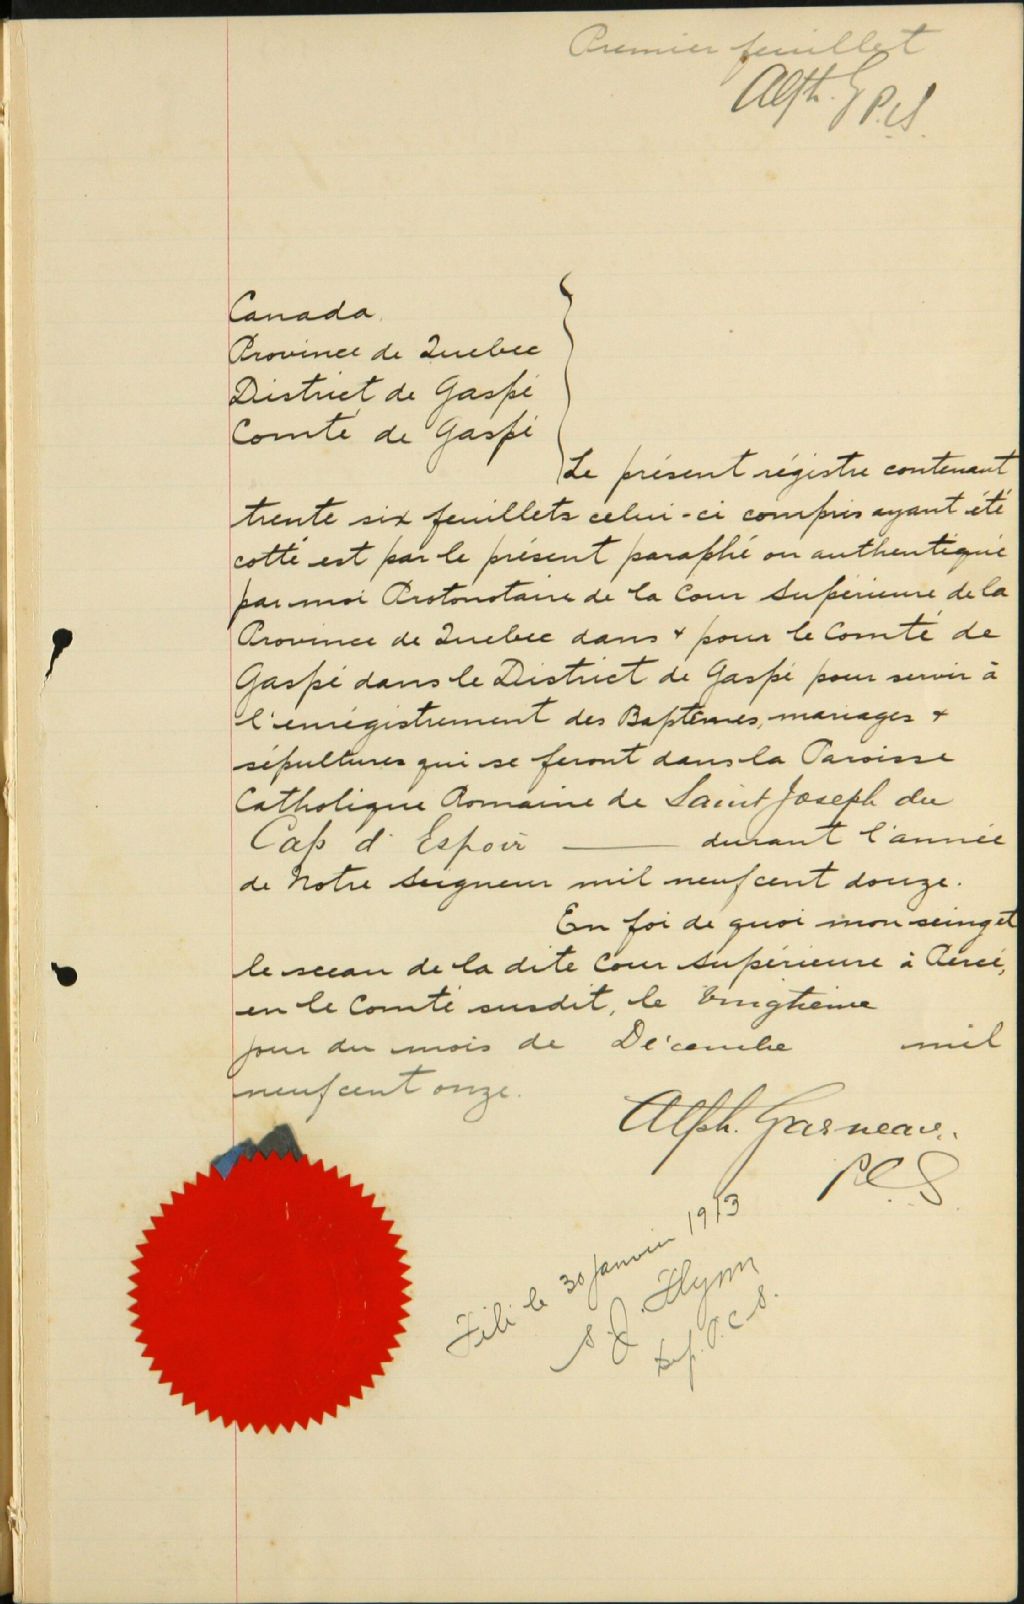 Premier feuillet
Alph. G P.C.S.
Canada.
Province de Quebec
District de Gaspé
Comté de Gaspé
Le présent régistre contenant
trente six feuillets celui-ci compris ayant été
cotté est par le présent paraphé ou authentiqué
par moi Protonotaire de la Cour Supérieure de la
Province de Quebec dans & pour le Comté de
Gaspé dans le District de Gaspé pour servir à
l'enrégistrement des Baptêmes, mariages &
sépultures qui se feront dans la Paroisse
Catholique Romaine de Saint Joseph du
Cap d'Espoir ——— durant l'année
de Notre Seigneur mil neuf cent douze.
En foi de quoi mon seing et
le sceau de la dite Cour Supérieure à Percé,
en le Comté susdit, le vingtième
jour du mois de Décembre mil
neuf cent onze.
Alph. Garneau.
P.C.S.
Filé le 30 Janvier 1913
S. J. Flynn
Dep. P.C.S.